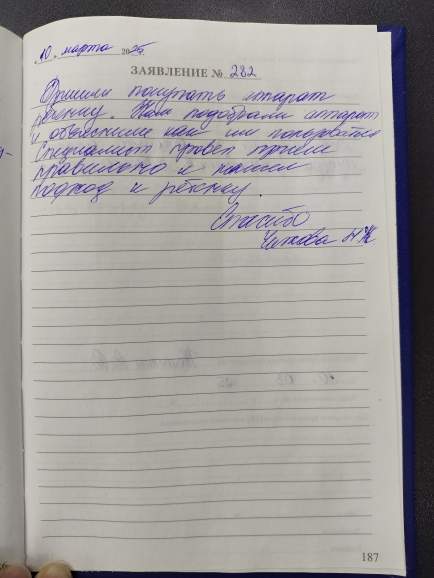 10 марта 2026
ЗАЯВЛЕНИЕ № 282
Пришли покупать аппарат
ребенку. Нам подобрали аппарат
и объяснили как им пользоваться
Специалист провел прием
правильно и нашел
подход к ребенку.
Спасибо
187